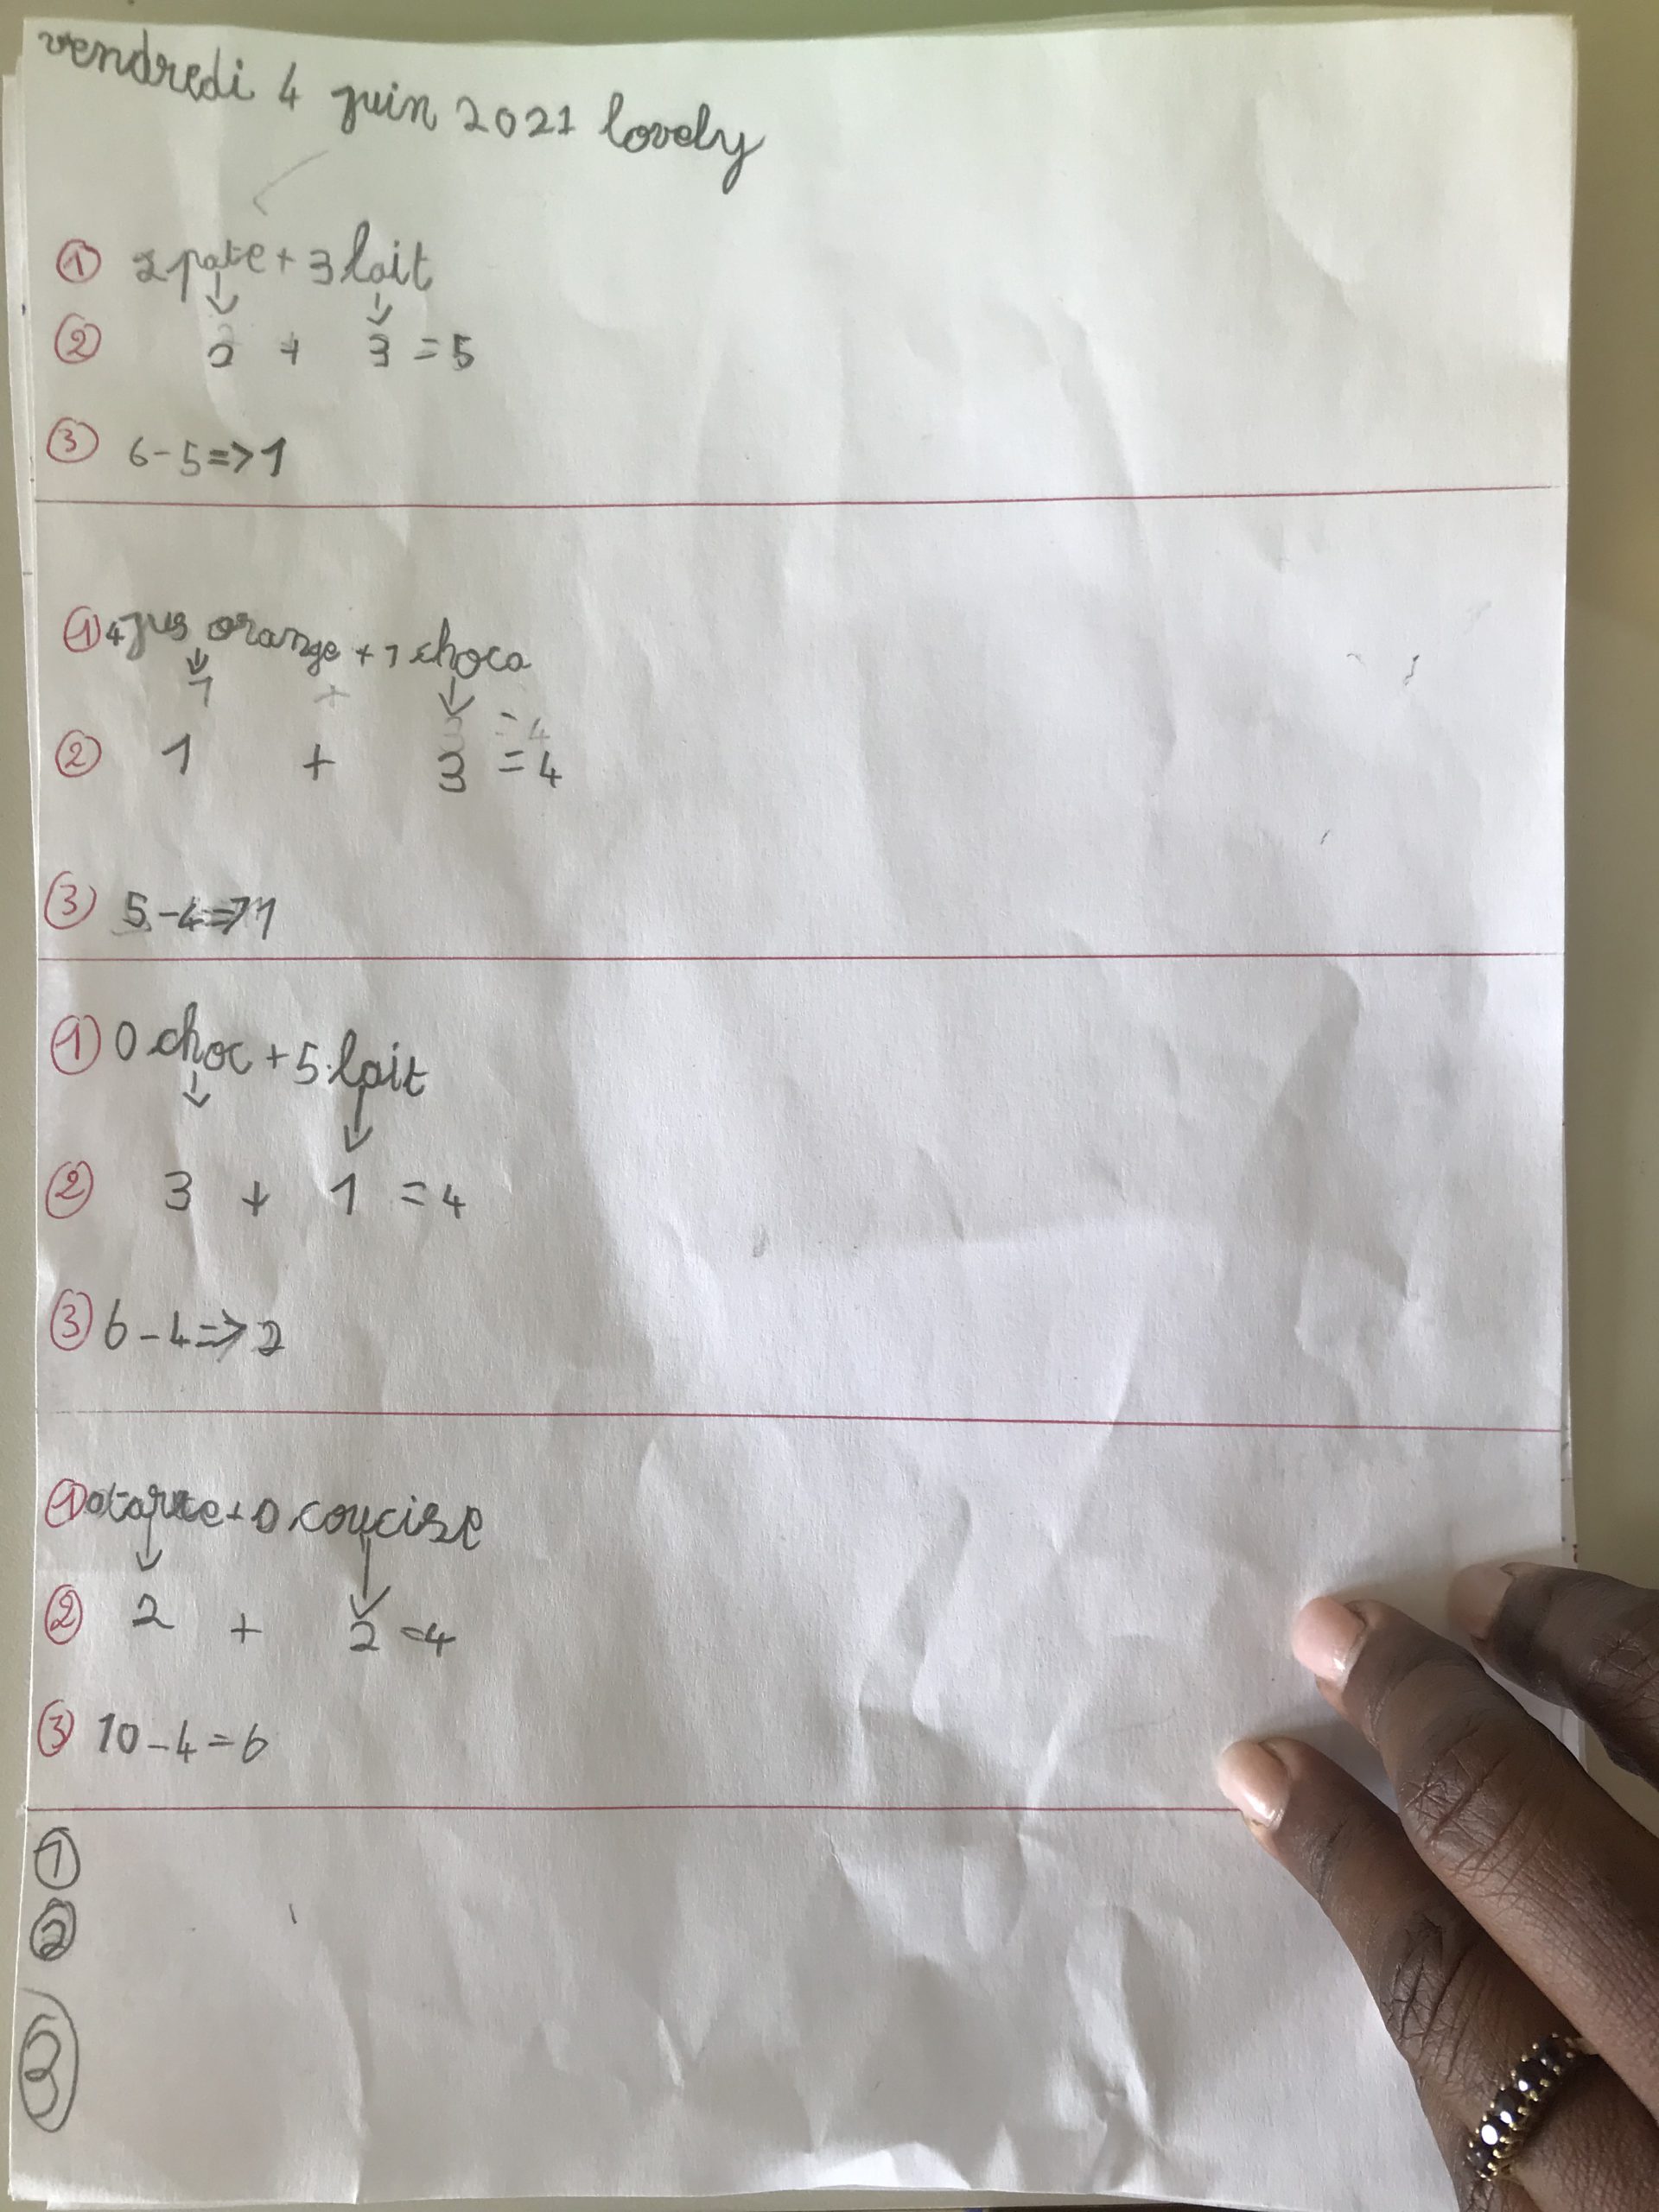 vendredi 4 juin 2021 lovely
① 2 pate + 3 lait
② 2 + 3 = 5
③ 6-5=>1
① 4 jus orange + 1 choco
1 + 3 = 4
② 1 + 3 = 4
③ 5-4=>1
① 0 choc + 5 lait
② 3 + 1 = 4
③ 6-4=>2
① 0 tarte + 0 coucise
② 2 + 2 = 4
③ 10-4=6
①
②
③